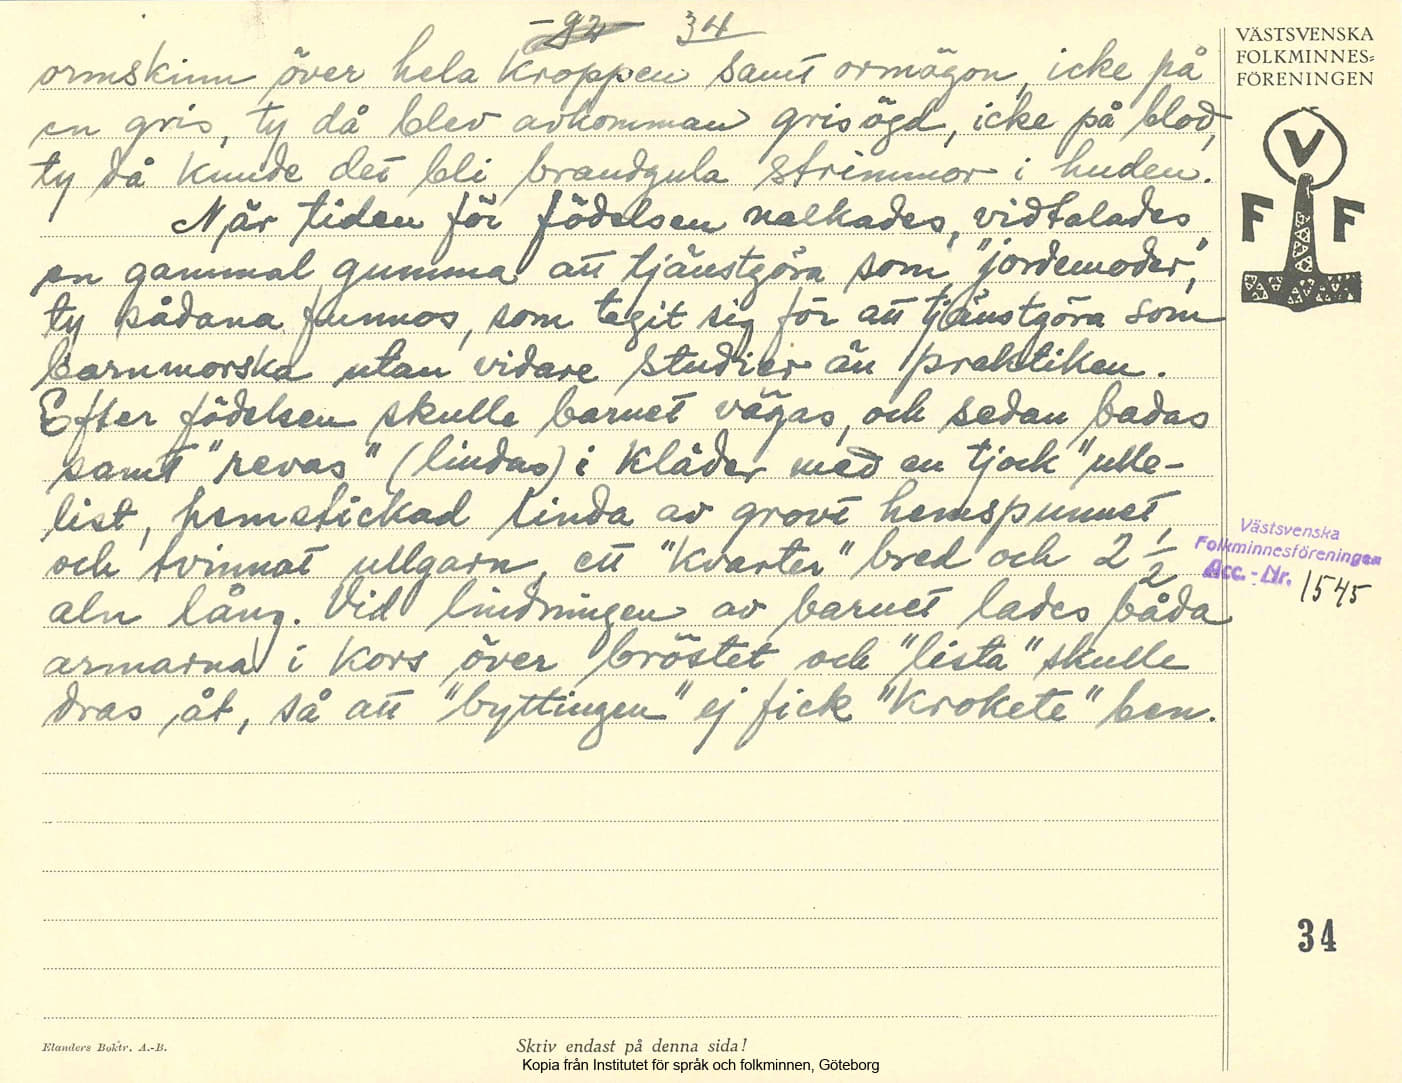 34
VÄSTSVENSKA
FOLKMINNES=
FÖRENINGEN
V
F F
ormskinn över hela kroppen samt ormögon, icke på
en gris, ty då blev avkomman grisögd, icke på blod,
ty då kunde det bli brandgula strimmor i huden.
När tiden för födelsen nalkades, vidtalades
en gammal gumma att tjänstgöra som "jordemoder",
ty sådana funnos, som tagit sig för att tjänstgöra som
barnmorska utan vidare studier än praktiken.
Efter födelsen skulle barnet vägas, och sedan badas
samt "revas" (lindas) i kläder med en tjock "ulle-
list, hemstickad linda av grovt hemspunnet,
och tvinnat ullgarn, ett "kvarter" bred och 2 1/2
aln lång. Vid lindningen av barnet lades båda
armarna i kors över bröstet och "lista" skulle
dras åt, så att "byttingen" ej fick "krokete" ben.
Västsvenska
Folkminnesföreningen
Acc.-Nr. 1545
34
Elanders Boktr. A.-B.
Skriv endast på denna sida!
Kopia från Institutet för språk och folkminnen, Göteborg